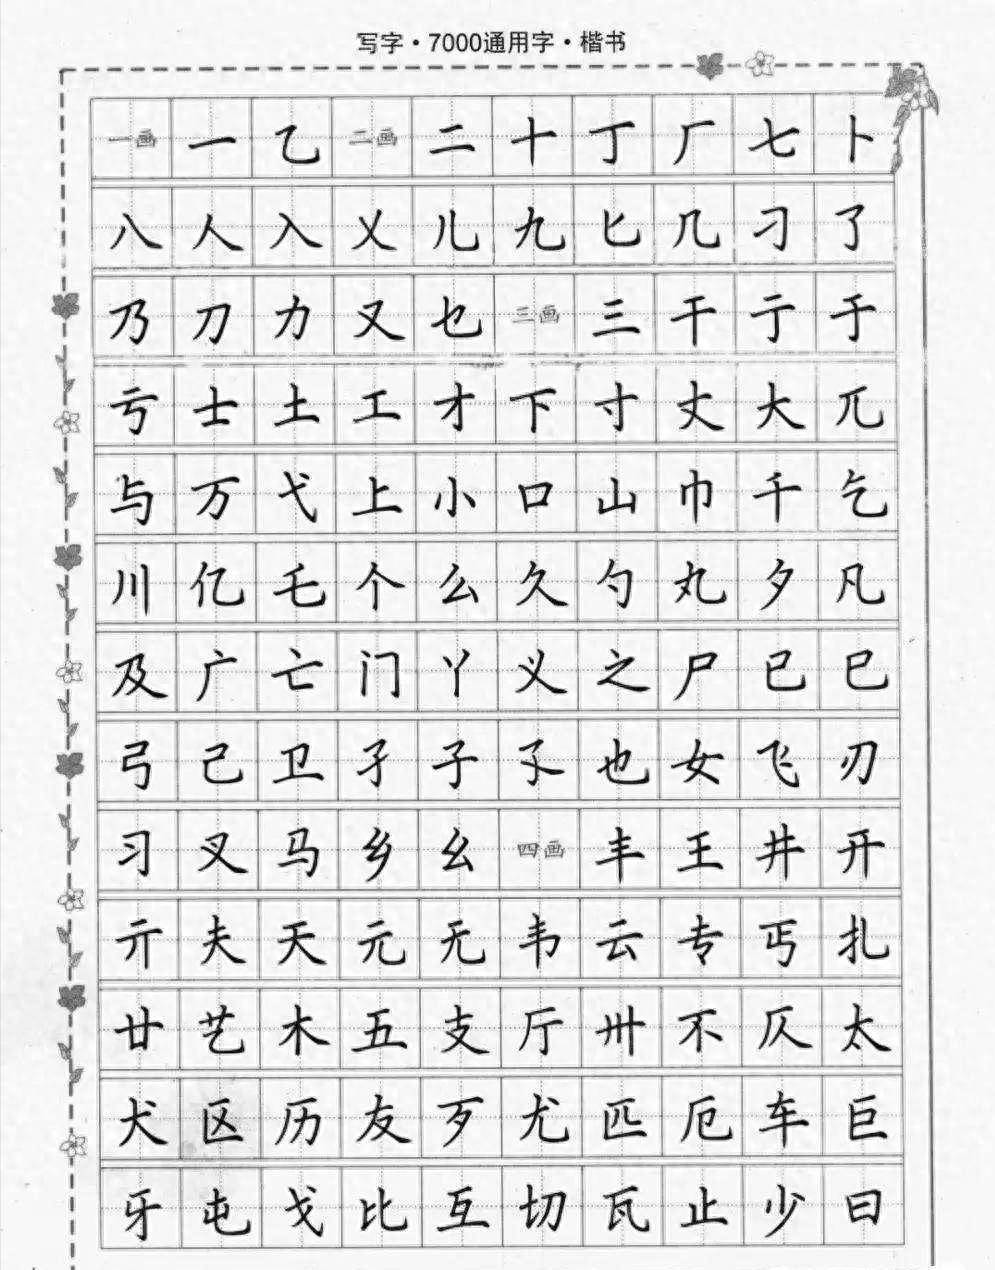 写字·7000通用字·楷书
一画 一 乙 二画 二 十 丁 厂 七 卜
八 人 入 乂 儿 九 匕 几 刁 了
乃 刀 力 又 乜 三画 三 干 亍 于
亏 士 土 工 才 下 寸 丈 大 兀
与 万 弋 上 小 口 山 巾 千 乞
川 亿 乇 个 么 久 勺 丸 夕 凡
及 广 亡 门 丫 义 之 尸 已 巳
弓 己 卫 孑 子 孓 也 女 飞 刃
习 叉 马 乡 幺 四画 丰 王 井 开
亓 夫 天 元 无 韦 云 专 丐 扎
廿 艺 木 五 支 厅 卅 不 仄 太
犬 区 历 友 歹 尤 匹 厄 车 巨
牙 屯 戈 比 互 切 瓦 止 少 曰